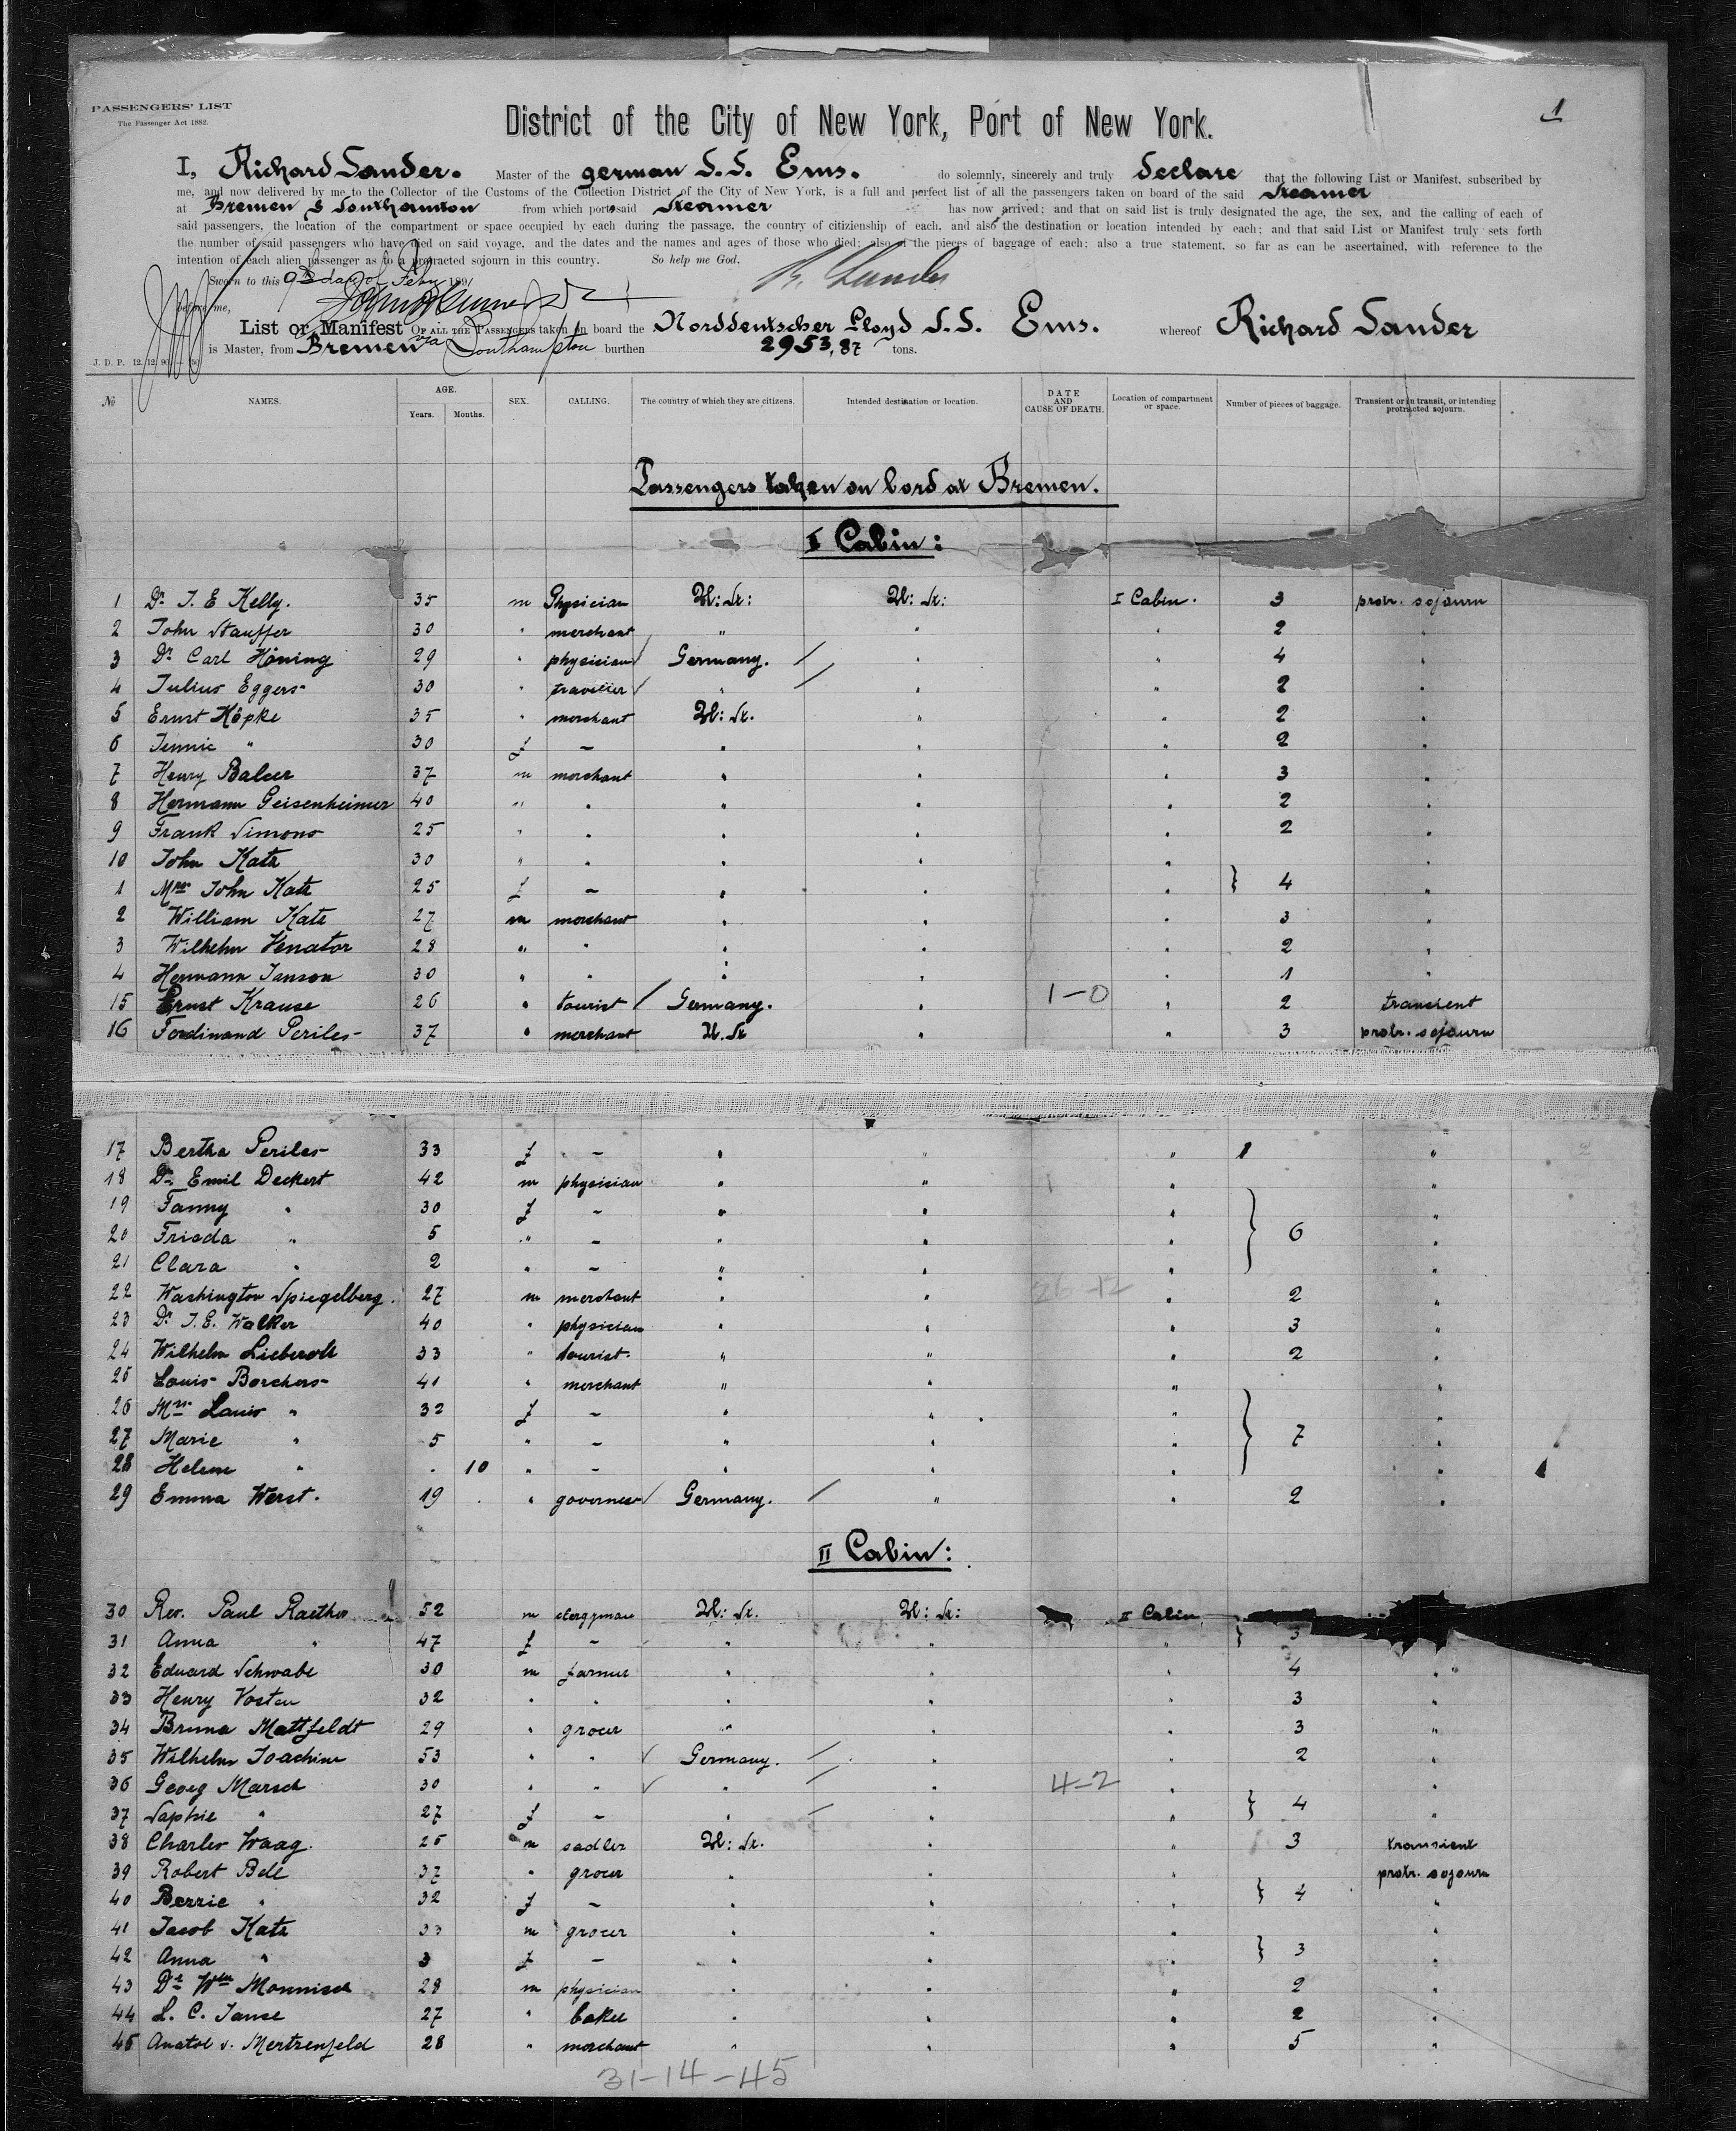 PASSENGERS' LIST
The Passenger Act 1882.
1
District of the City of New York, Port of New York.
I, Richard Sander. Master of the german S.S. Ems. do solemnly, sincerely and truly declare that the following List or Manifest, subscribed by
me, and now delivered by me to the Collector of the Customs of the Collection District of the City of New York, is a full and perfect list of all the passengers taken on board of the said Steamer
at Bremen & Southamton from which port, said Steamer has now arrived; and that on said list is truly designated the age, the sex, and the calling of each of
said passengers, the location of the compartment or space occupied by each during the passage, the country of citizienship of each, and also the destination or location intended by each; and that said List or Manifest truly sets forth
the number of said passengers who have died on said voyage, and the dates and the names and ages of those who died; also of the pieces of baggage of each; also a true statement, so far as can be ascertained, with reference to the
intention of each alien passenger as to a protracted sojourn in this country. So help me God.
Sworn to this 9th day of Feby 1891 R. Sander
before me,
List or Manifest OF ALL THE PASSENGERS taken on board the Norddeutscher Lloyd S.S. Ems. whereof Richard Sander
is Master, from Bremen via Southampton burthen 2953,87 tons.
J. D. P. 12. 12. 90.
No NAMES. AGE. Years. Months. SEX. CALLING. The country of which they are citizens. Intended destination or location. DATE AND CAUSE OF DEATH. Location of compartment or space. Number of pieces of baggage. Transient or in transit, or intending protracted sojourn.
Passengers taken on bord at Bremen.
I Cabin:
1 Dr. J. E Kelly. 35 m Physician U: St: U: St: I Cabin. 3 protr. sojourn
2 John Stauffer 30 " merchant " " " 2 "
3 Dr. Carl Höning 29 " physician Germany. " " 4 "
4 Julius Eggers 30 " traveller " " " 2 "
5 Ernst Köpke 35 " merchant U: St. " " 2 "
6 Jennie " 30 f - " " " 2 "
7 Henry Balcer 37 m merchant " " " 3 "
8 Hermann Geisenheimer 40 " " " " " 2 "
9 Frank Simons 25 " " " " " 2 "
10 John Katz 30 " " " " " "
1 Mrs. John Katz 25 f - " " " } 4 "
2 William Katz 27 m merchant " " " 3 "
3 Wilhelm Venator 28 " " " " " 2 "
4 Hermann Janson 30 " " " " " 1 "
15 Ernst Krause 26 " tourist Germany. " 1-0 " 2 transient
16 Ferdinand Periles 37 " merchant U. St " " 3 protr. sojourn
17 Bertha Periles 33 f - " " " 1 "
18 Dr. Emil Deckert 42 m physician " " " "
19 Fanny " 30 f - " " " "
20 Frieda " 5 " - " " " } 6 "
21 Clara " 2 " - " " " "
22 Washington Spiegelberg. 27 m merchant " " 26-12 " 2 "
23 Dr. J. E. Walker 40 " physician " " " 3 "
24 Wilhelm 33 " tourist. " " " 2 "
25 Louis Borchers 41 " merchant " " " "
26 Mrs. Louis " 32 f - " " " "
27 Marie " 5 " - " " " } 7 "
28 Helene " . 10 " - " " " "
29 Emma Werst. 19 " governess Germany. " " 2 "
II Cabin:
30 Rev. Paul Raether 52 m clergyman U: St. U: St: II Cabin
31 Anna " 47 f - " " " } 3
32 Eduard Schwabe 30 m farmer " " " 4 "
33 Henry Vosten 32 " " " " " 3 "
34 Bruno Mattfeldt 29 " grocer " " " 3 "
35 Wilhelm Joachim 53 " " Germany. " " 2 "
36 Georg Marsch 30 " " " " 4-2 " "
37 Sophie " 27 f - " " " } 4 "
38 Charles Waag. 25 m sadler U: St. " " 3 transient
39 Robert Bell 37 " grocer " " " protr. sojourn
40 Berrie " 32 f - " " " } 4 "
41 Jacob Katz 33 m grocer " " " "
42 Anna " 3 f - " " " } 3 "
43 Dr. Wm Monnisch 28 m physician " " " 2 "
44 L. C. Janse 27 " baker " " " 2 "
45 Anatol v. Mertzenfeld 28 " merchant " " " 5 "
31-14-45